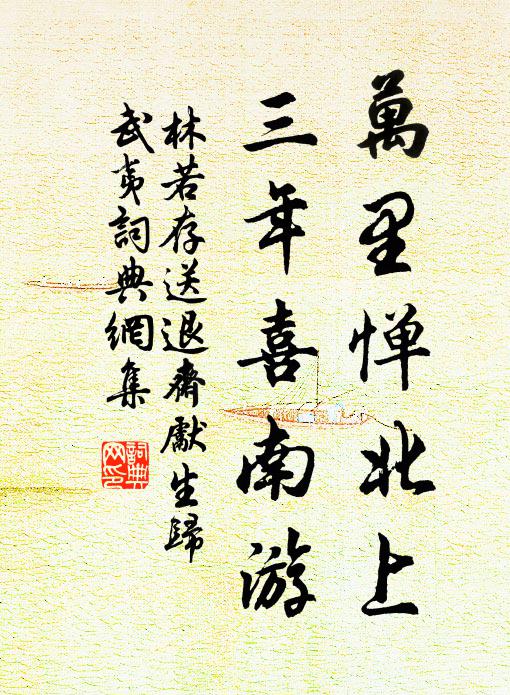 萬里惮北上
三年喜南游
林若存送退齋獻生歸
武夷詞典網集
詞典
网印